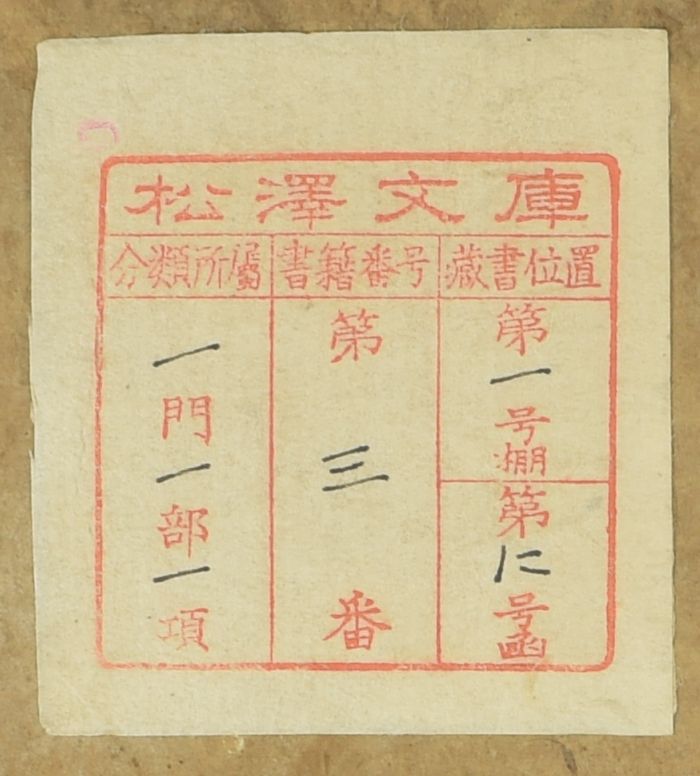 松澤文庫
藏書位置
第一号棚
第に号函
書籍番号
第三番
分類所屬
一門一部一項